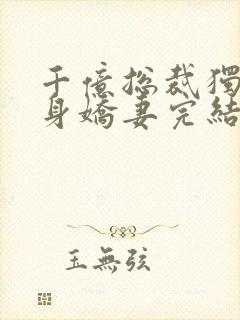 千億总裁獨
身嬌妻完結
玉無弦